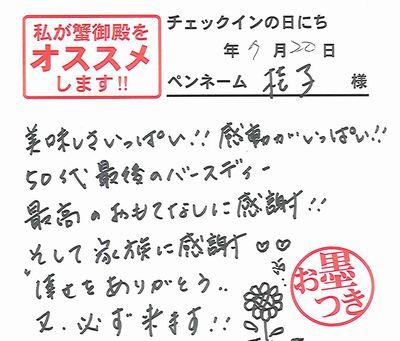 私が蟹御殿を
オススメ
します!!
チェックインの日にち
年9月20日
ペンネーム 桂子 様
美味しさいっぱい!! 感動がいっぱい!!
50代最後のバースディー
最高のおもてなしに感謝!!
そして家族に感謝♡♡
"倖せをありがとう..
又、必ず来ます!!
お墨
つき